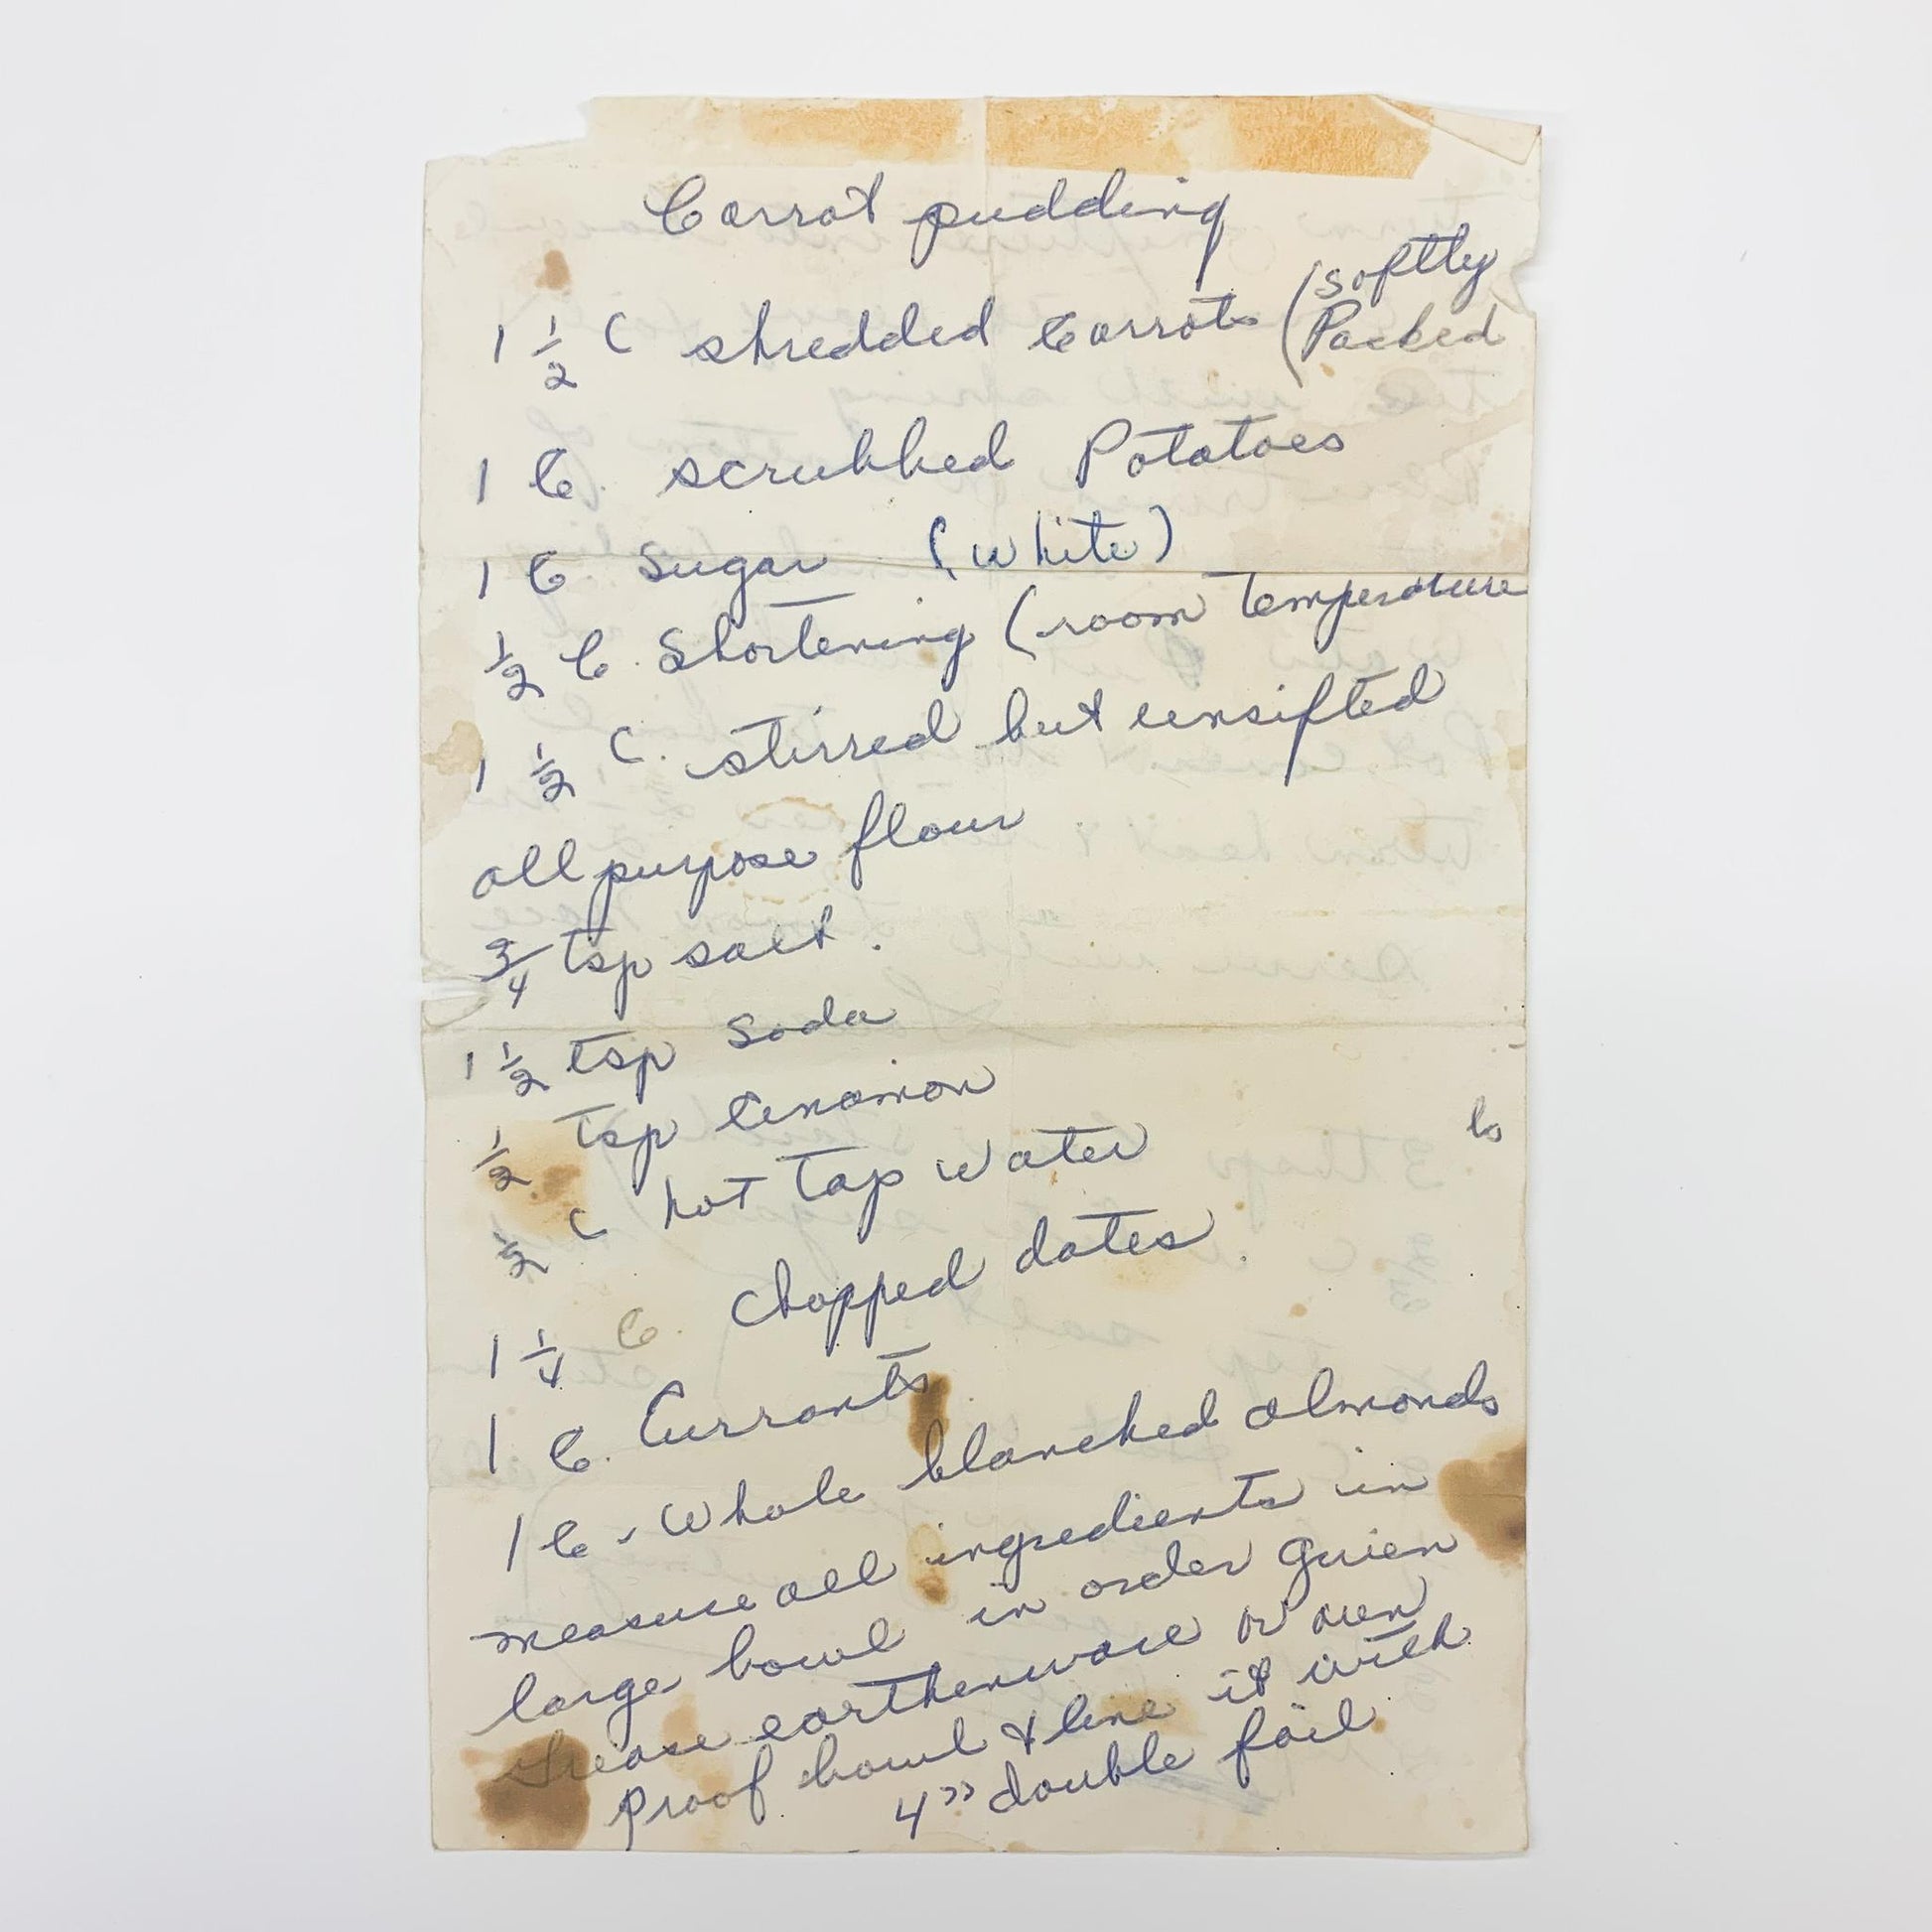 Carrot pudding
1 1/2 C shredded Carrots (softly
Packed
1 C. scrubbed Potatoes
1 C Sugar (White)
1/2 C. Shortening (room temperature
1 1/2 C. stirred but unsifted
all purpose flour
3/4 tsp salt.
1 1/2 tsp soda
1/2 tsp Cinamon
1/2 C hot tap water
1 1/4 C. chopped dates.
1 C. Currants
1 C. Whole blanched almonds
measure all ingredients in
large bowl in order given
Grease earthenware or oven
Proof bowl & line it with
4" double foil